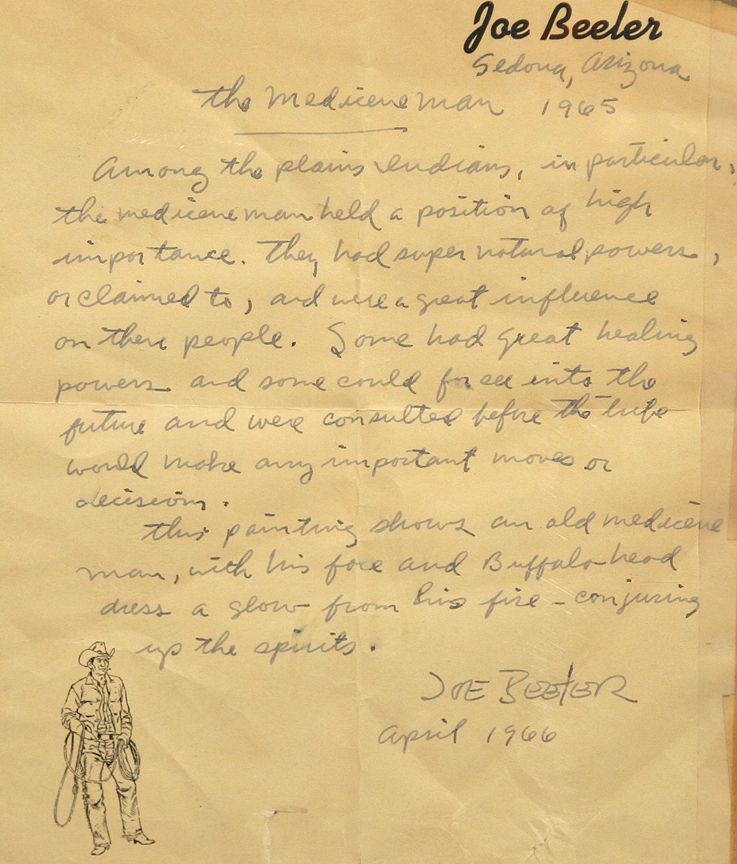 Joe Beeler
Sedona, Arizona
the medicene man 1965
Among the plains Indians, in particular,
the medicene man held a position of high
importance. They had super natural powers,
or claimed to, and were a great influence
on their people. Some had great healing
powers and some could for see into the
future and were consulted before the tribe
would make any important moves or
decisions.
this painting shows an old medicene
man, with his face and Buffalo head
dress a glow from his fire - conjuring
up the spirits.
JOE BEELER
April 1966